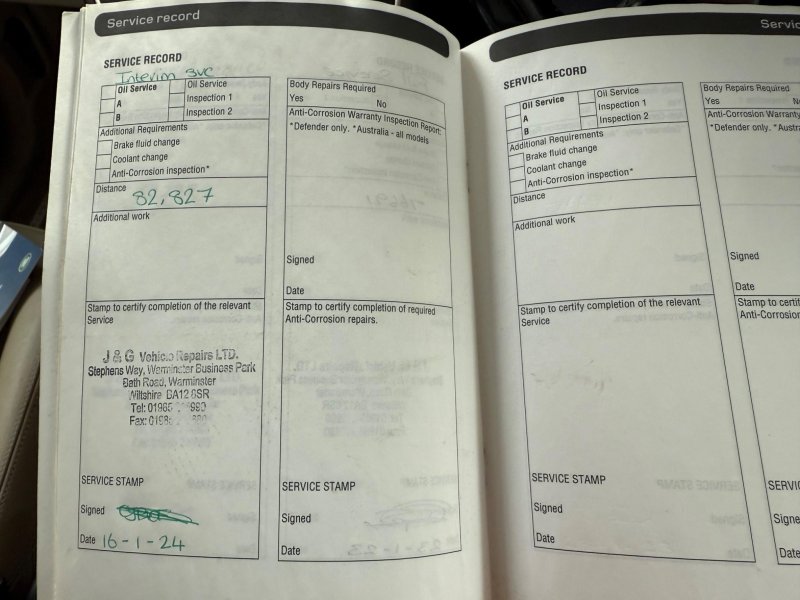 Service record
SERVICE RECORD
Interim SVC
Oil Service
A
B
Oil Service
Inspection 1
Inspection 2
Additional Requirements
Brake fluid change
Coolant change
Anti-Corrosion inspection*
Distance
82,827
Additional work
Stamp to certify completion of the relevant
Service
J & G Vehicle Repairs LTD.
Stephens Way, Warminster Business Park
Bath Road, Warminster
Wiltshire BA12 0SR
Tel: 01985
Fax:
SERVICE STAMP
Signed
Date 16-1-24
Body Repairs Required
Yes No
Anti-Corrosion Warranty Inspection Report:
*Defender only. *Australia - all models
Signed
Date
Stamp to certify completion of required
Anti-Corrosion repairs.
SERVICE STAMP
Signed
Date
Servic
SERVICE RECORD
Oil Service
A
B
Oil Service
Inspection 1
Inspection 2
Additional Requirements
Brake fluid change
Coolant change
Anti-Corrosion inspection*
Distance
Additional work
Stamp to certify completion of the relevant
Service
SERVICE STAMP
Signed
Date
Body Repairs Required
Yes N
Anti-Corrosion Warranty
*Defender only. *Austra
Signed
Date
Stamp to certif
Anti-Corrosion
SERVIC
Signe
Date